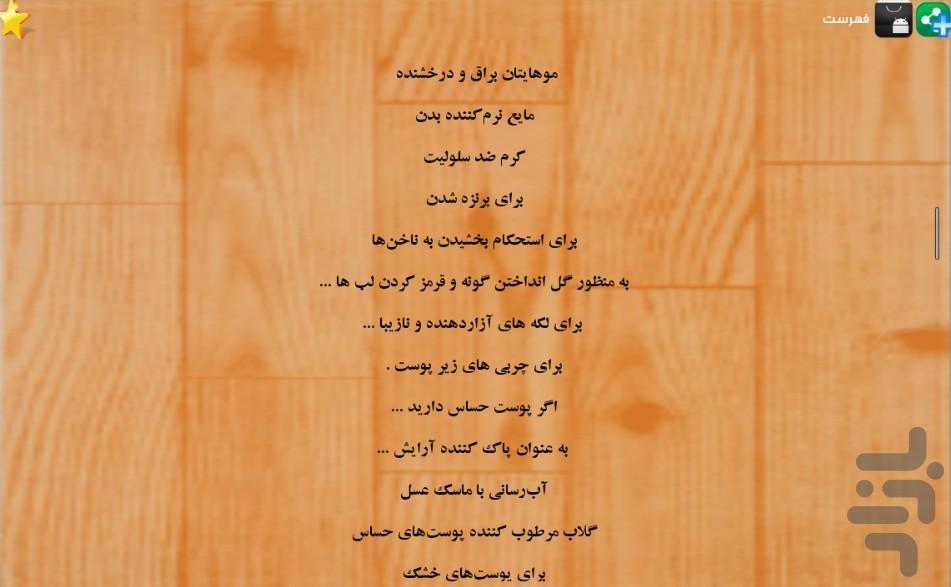 فهرست
موهایتان براق و درخشنده
مایع نرم‌کننده بدن
کرم ضد سلولیت
برای برنزه شدن
برای استحکام بخشیدن به ناخن‌ها
به منظور گل انداختن گونه و قرمز کردن لب ها ...
برای لکه های آزاردهنده و نازیبا ...
برای چربی های زیر پوست .
اگر پوست حساس دارید ...
به عنوان پاک کننده آرایش ...
آب‌رسانی با ماسک عسل
گلاب مرطوب کننده پوست‌های حساس
برای پوست‌های خشک
بازار